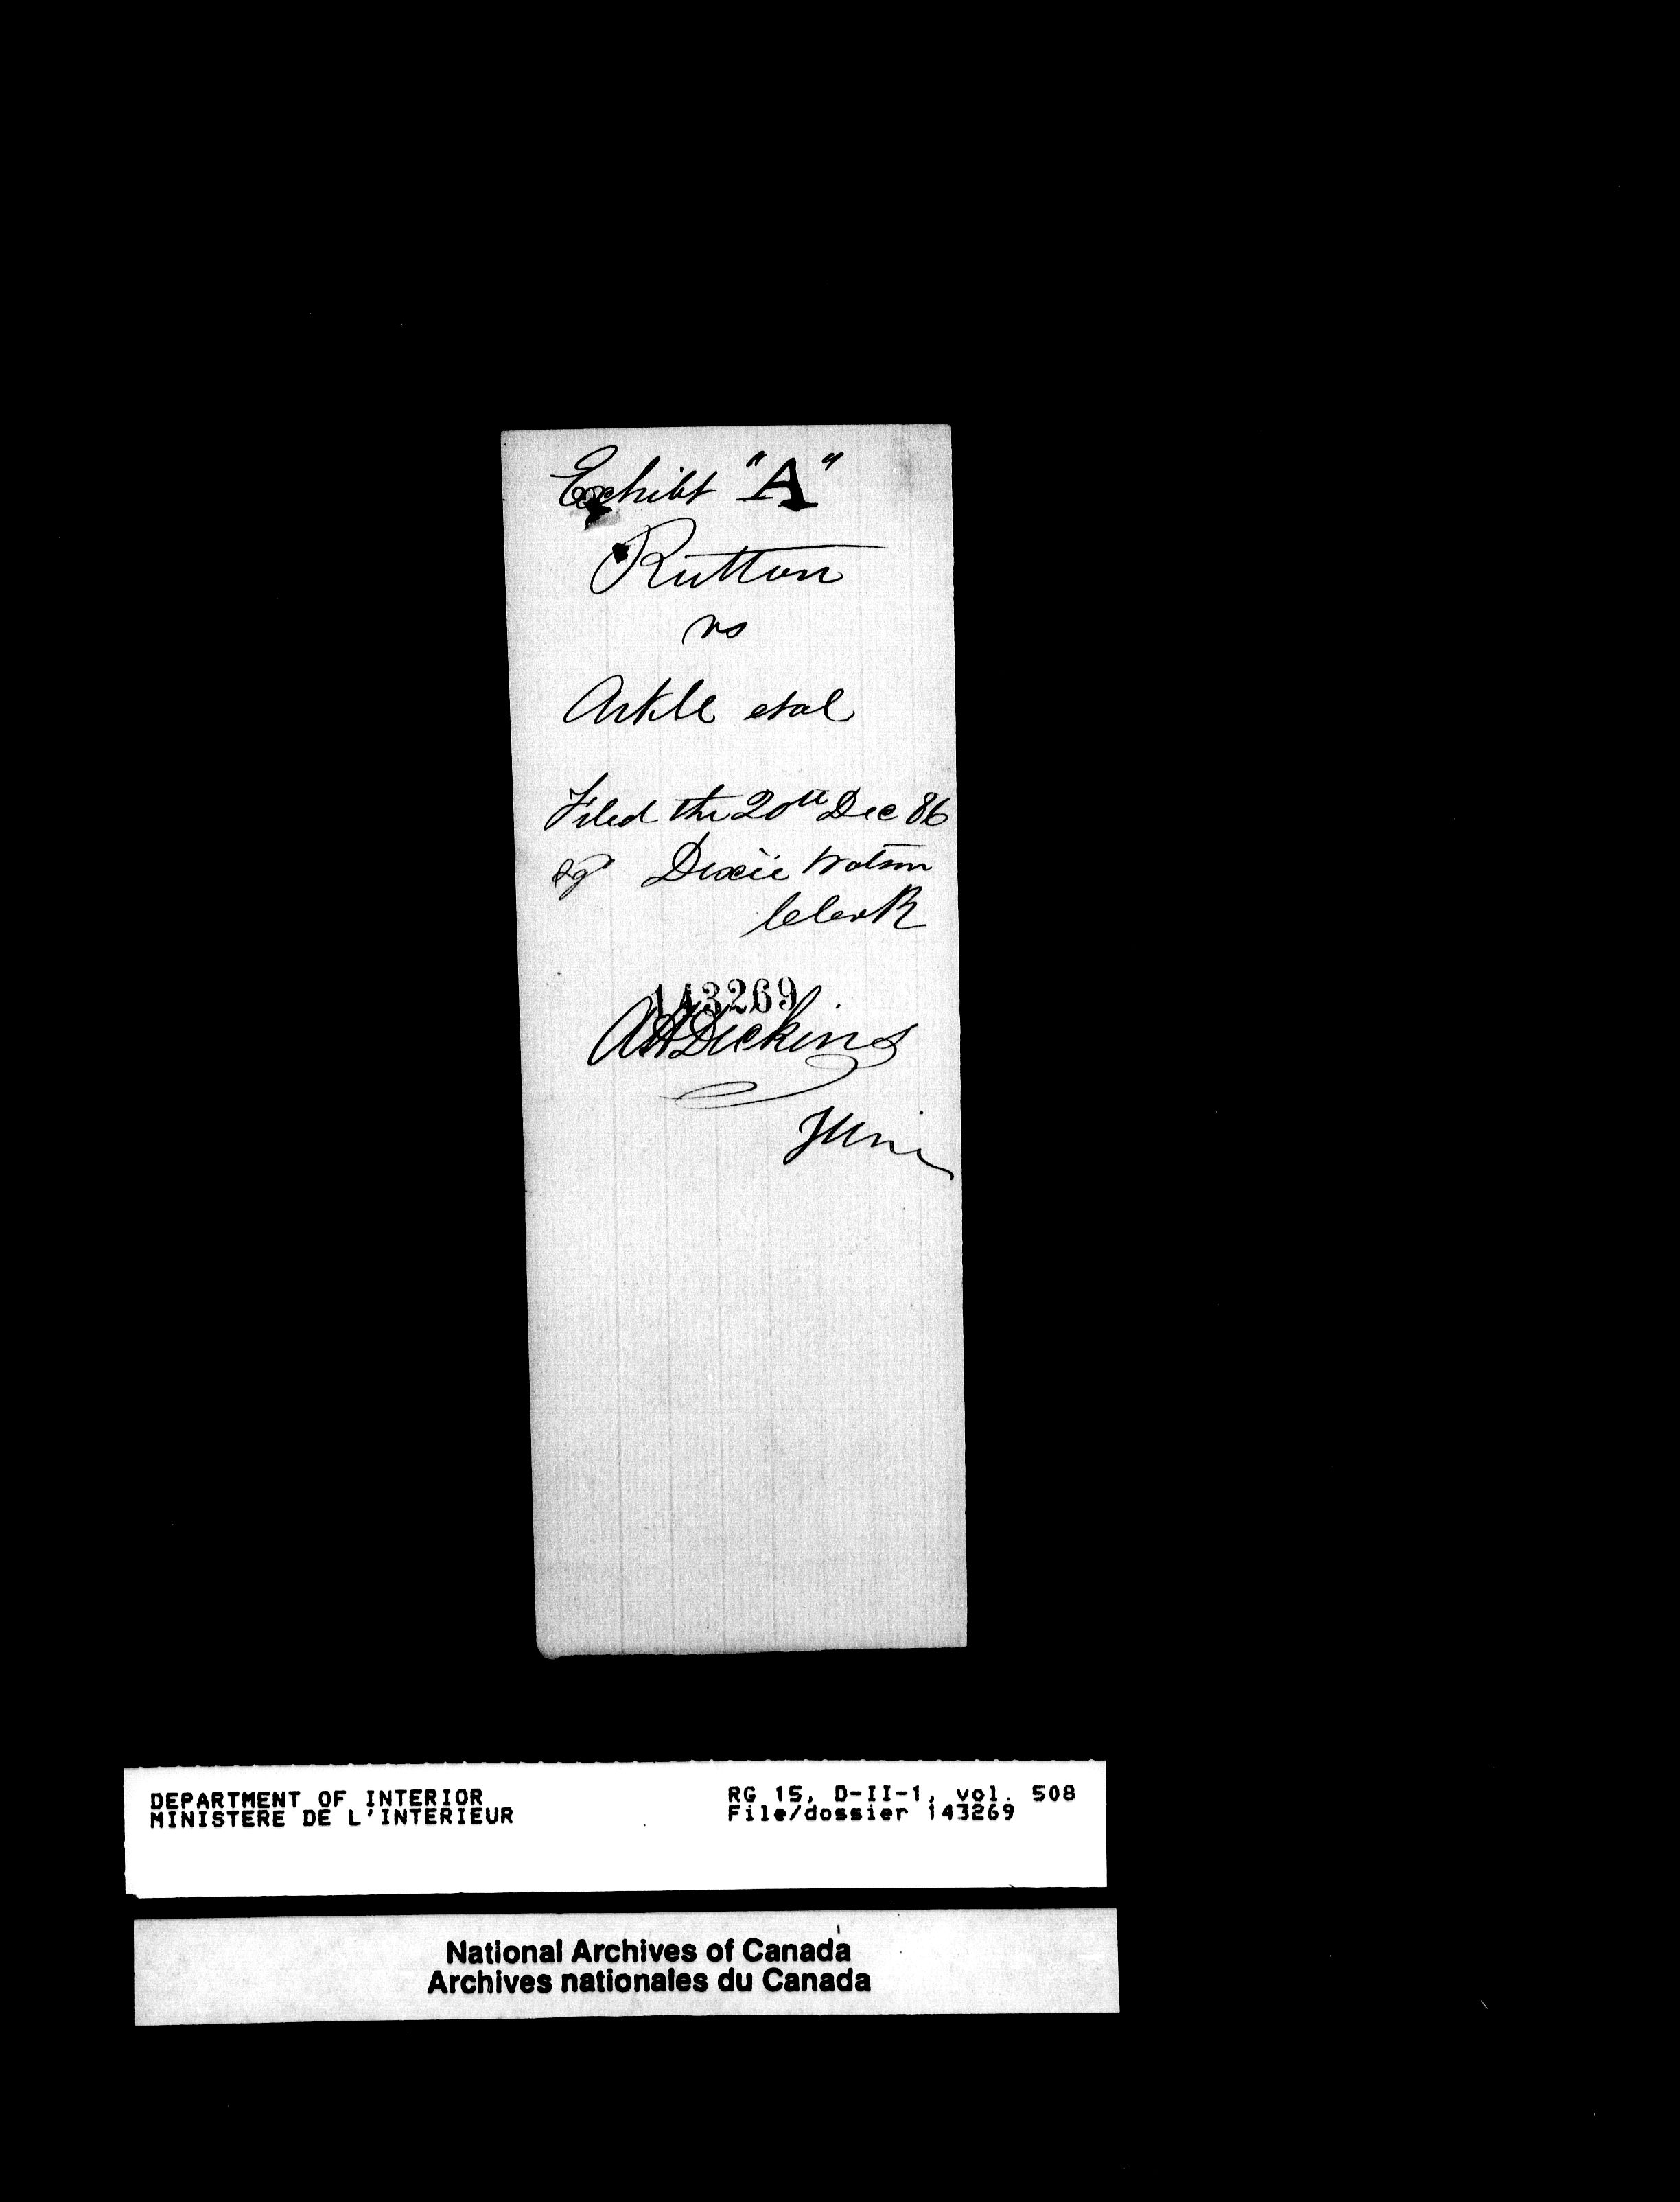 Exhibt "A"
Rutton
vs
Arkle et al
Filed the 20th Dec 86
sgd Dixie Watson
Clerk
143269
AH Dickins
DEPARTMENT OF INTERIOR RG 15, D-II-1, vol. 508
MINISTERE DE L'INTERIEUR File/dossier 143269
National Archives of Canada
Archives nationales du Canada